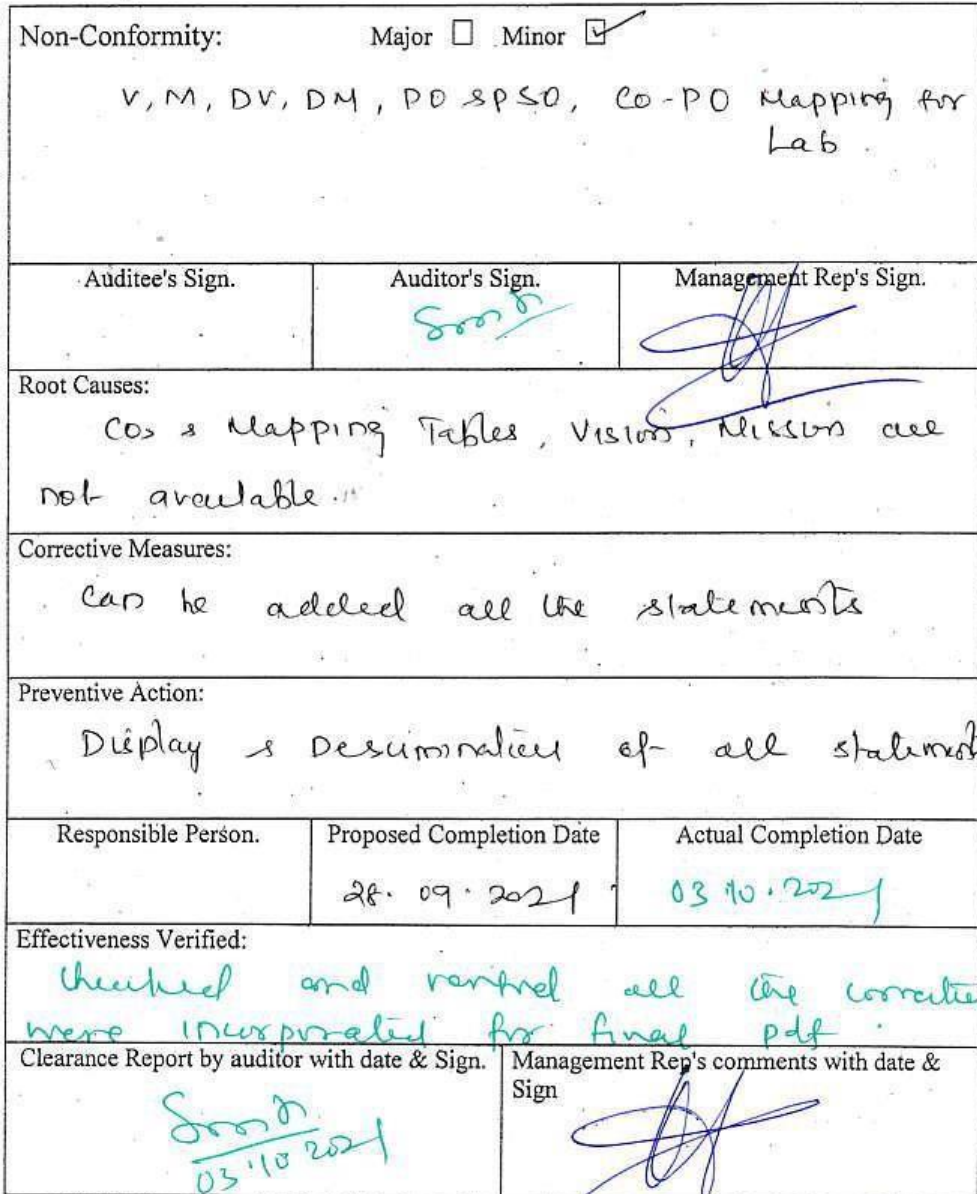 Non-Conformity: Major ☐ Minor ☑
V, M, DV, DM, PO & PSO, CO-PO Mapping for
Lab.
Auditee's Sign. Auditor's Sign. Management Rep's Sign.
Root Causes:
COs & Mapping Tables, Vision, Mission are
not available.
Corrective Measures:
Can be added all the statements
Preventive Action:
Display & Desimination of all statement
Responsible Person. Proposed Completion Date Actual Completion Date
28.09.2021 03.10.2021
Effectiveness Verified:
Checked and verified all the
were incorporated for final pdf.
Clearance Report by auditor with date & Sign. Management Rep's comments with date &
Sign
03.10.2021